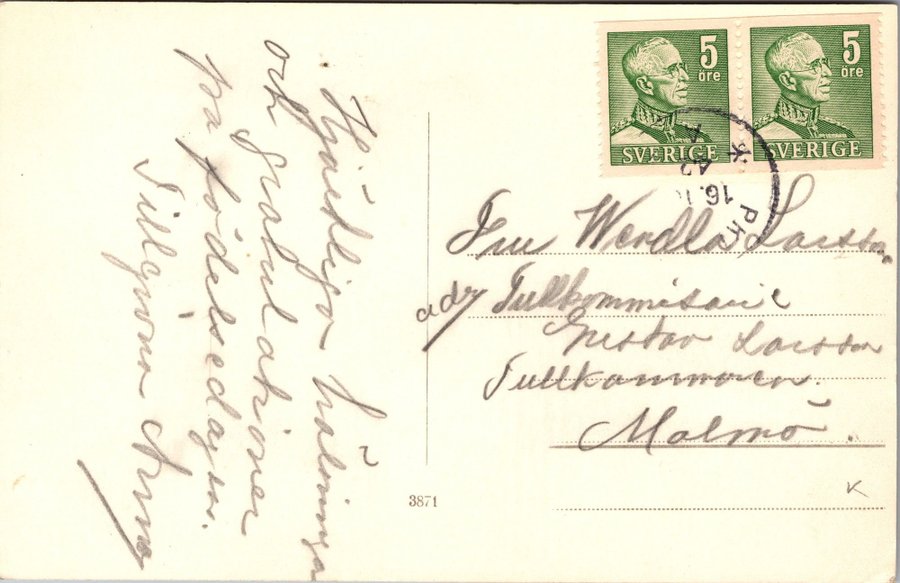 Hjärtliga hälsninga
och gratulationer
på födelsedagen.
Tillgivna Anna
5 öre
SVERIGE
5 öre
SVERIGE
16.
42
Fru Wendla Larsson
adr Tullkommisarie
Gustav Larsson
Tullkammaren.
Malmö.
3871
K